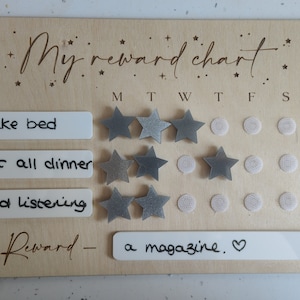 My reward chart
M T W T F S
ke bed
all dinner
listening
Reward – a magazine. ♡